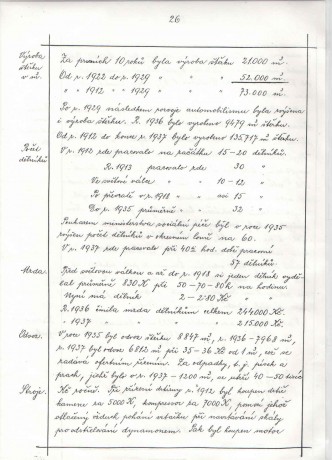 26
Výroba štěrku v m³.
Za prvních 10 roků byla výroba štěrku 21.000 m³.
Od r. 1922 do r. 1929 " " " 52.000 m³.
" " 1912 " " 1929 " " " 73.000 m³.
Po r. 1929 následkem rozvoje automobilismu byla zvýšena
i výroba štěrku. R. 1936 bylo vyrobeno 9479 m³ štěrku.
Od r. 1912 do konce r. 1937 bylo vyrobeno 135.717 m³ štěrku.
Počet dělníků
V r. 1912 zde pracovalo na začátku 15-20 dělníků.
R. 1913 pracovalo zde 30 "
Ve světové válce " " 10-12 "
Po převratě " " asi 15 "
Do r. 1935 průměrně " " 32 "
Poukazem ministerstva sociální péče byl v roce 1935
zvýšen počet dělníků v okresním lomu na 60.
V r. 1937 zde pracovalo při 40ti hod. době pracovní
57 dělníků
Mzda.
Před světovou válkou a až do r. 1918 si jeden dělník vydě-
lal průměrně 8.30 K při 50-70-80 h na hodinu.
Nyní má dělník 2-2.80 Kč "
R. 1936 činila mzda dělníkům celkem 244.000 Kč.
" 1937 " " " " 215.000 Kč.
Odvoz.
V roce 1935 byl odvoz štěrku 8847 m³, r. 1936 - 7968 m³,
r. 1937 byl odvoz 6812 m³ při 35-36 Kč od 1 m³, což se
zadává ofertním řízením. Za odpadky, t. j. písek a
prach, jehož bylo v r. 1937 - 1200 m³, se utrží 40-50 tisíc
Kč ročně.
Stroje.
r. 1912 byl koupen drtič
kamene za 5000 K, kompresor za 7000 K, pomocí jehož
stlačený vzduch pohání vrtačky při navrtávání skály
pro odstřelování dynamonem. Pak byl koupen motor